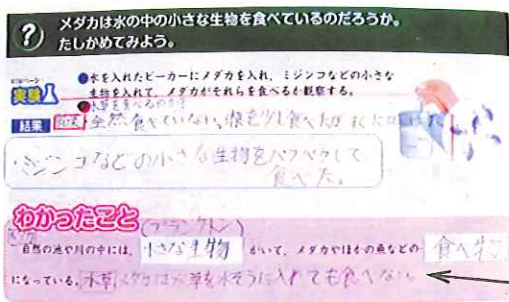 ? メダカは水の中の小さな生物を食べているのだろうか。
たしかめてみよう。
実験
●水を入れたビーカーにメダカを入れ、ミジンコなどの小さな
生物を入れて、メダカがそれらを食べるか観察する。
●水草を食べるのか?
結果 全然食べていない。根を少し食べたが
・ミジンコなどの小さな生物をパクパクして
食べた。
わかったこと
(プランクトン)
自然の池や川の中には、小さな生物がいて、メダカやほかの魚などの食べ物
になっている。水草 メダカは水草を水そうに入れても食べない。